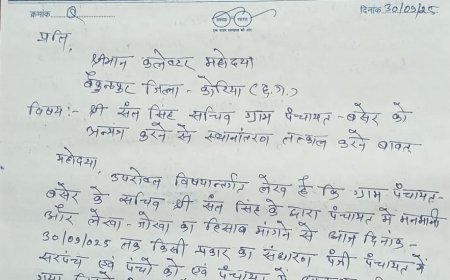 क्रमांक
दिनांक 30/09/25
प्रति,
श्रीमान कलेक्टर महोदया
बैकुण्ठपुर जिला - कोरिया (छ.ग.)
विषय:- श्री संत सिंह सचिव ग्राम पंचायत - बसेर को
अन्यत्र करने से स्थानांतरण तत्काल करने बावत
महोदया,
उपरोक्त विषयान्तर्गत लेख है कि ग्राम पंचायत-
बसेर के सचिव श्री संत सिंह के द्वारा पंचायत में मनमानी
और लेखा - जोखा का हिसाब मांगने से आज दिनांक -
30/09/025 तक किसी प्रकार का संधारण पंजी पंचायत में
सरपंच एवं पंचो को एवं पंचायत में